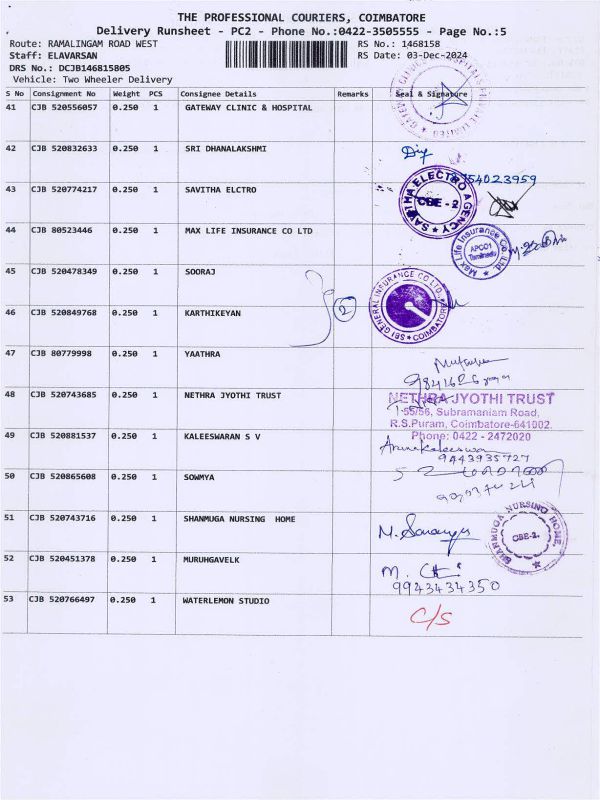 THE PROFESSIONAL COURIERS, COIMBATORE
Delivery Runsheet - PC2 - Phone No.:0422-3505555 - Page No.:5
Route: RAMALINGAM ROAD WEST RS No.: 1468158
Staff: ELAVARSAN RS Date: 03-Dec-2024
DRS No.: DCJB146815B05
Vehicle: Two Wheeler Delivery
S No Consignment No Weight PCS Consignee Details Remarks Seal & Signature
41 CJB 520556057 0.250 1 GATEWAY CLINIC & HOSPITAL
42 CJB 520832633 0.250 1 SRI DHANALAKSHMI
43 CJB 520774217 0.250 1 SAVITHA ELCTRO
SAVITHA ELECTRO AGENCY
CBE - 2
44 CJB 80523446 1 MAX LIFE INSURANCE CO LTD
Max Life Insurance Co. Ltd.
APC01
Tamilnadu
45 CJB 520478349 0.250 1 SOORAJ
SBI GENERAL INSURANCE CO LTD.
COIMBATORE
46 CJB 520849768 0.250 1 KARTHIKEYAN
2
47 CJB 80779998 1 YAATHRA
48 CJB 520743685 0.250 1 NETHRA JYOTHI TRUST
NETHRA JYOTHI TRUST
55/56, Subramaniam Road,
R.S.Puram, Coimbatore-641002.
Phone: 0422 - 2472020
49 CJB 520881537 0.250 1 KALEESWARAN S V
9443935727
50 CJB 520865608 0.250 1 SOWMYA
51 CJB 520743716 0.250 1 SHANMUGA NURSING HOME
SHANMUGA NURSING HOME
CBE-2.
52 CJB 520451378 0.250 1 MURUHGAVELK
9943434350
53 CJB 520766497 0.250 1 WATERLEMON STUDIO
C/S